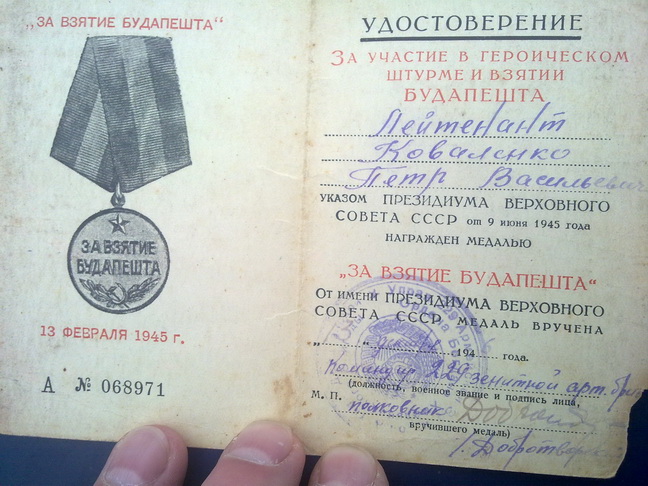 „ЗА ВЗЯТИЕ БУДАПЕШТА“
ЗА ВЗЯТИЕ
БУДАПЕШТА
13 ФЕВРАЛЯ 1945 г.
А № 068971
УДОСТОВЕРЕНИЕ
ЗА УЧАСТИЕ В ГЕРОИЧЕСКОМ
ШТУРМЕ И ВЗЯТИИ
БУДАПЕШТА
Лейтенант
Коваленко
Петр Васильевич
УКАЗОМ ПРЕЗИДИУМА ВЕРХОВНОГО
СОВЕТА СССР от 9 июня 1945 года
НАГРАЖДЕН МЕДАЛЬЮ
„ЗА ВЗЯТИЕ БУДАПЕШТА“
От имени ПРЕЗИДИУМА ВЕРХОВНОГО
СОВЕТА СССР МЕДАЛЬ ВРУЧЕНА
194 года.
Командир 229 зенитной арт.
(должность, военное звание и подпись лица,
М. П.
полковник
вручившего медаль)